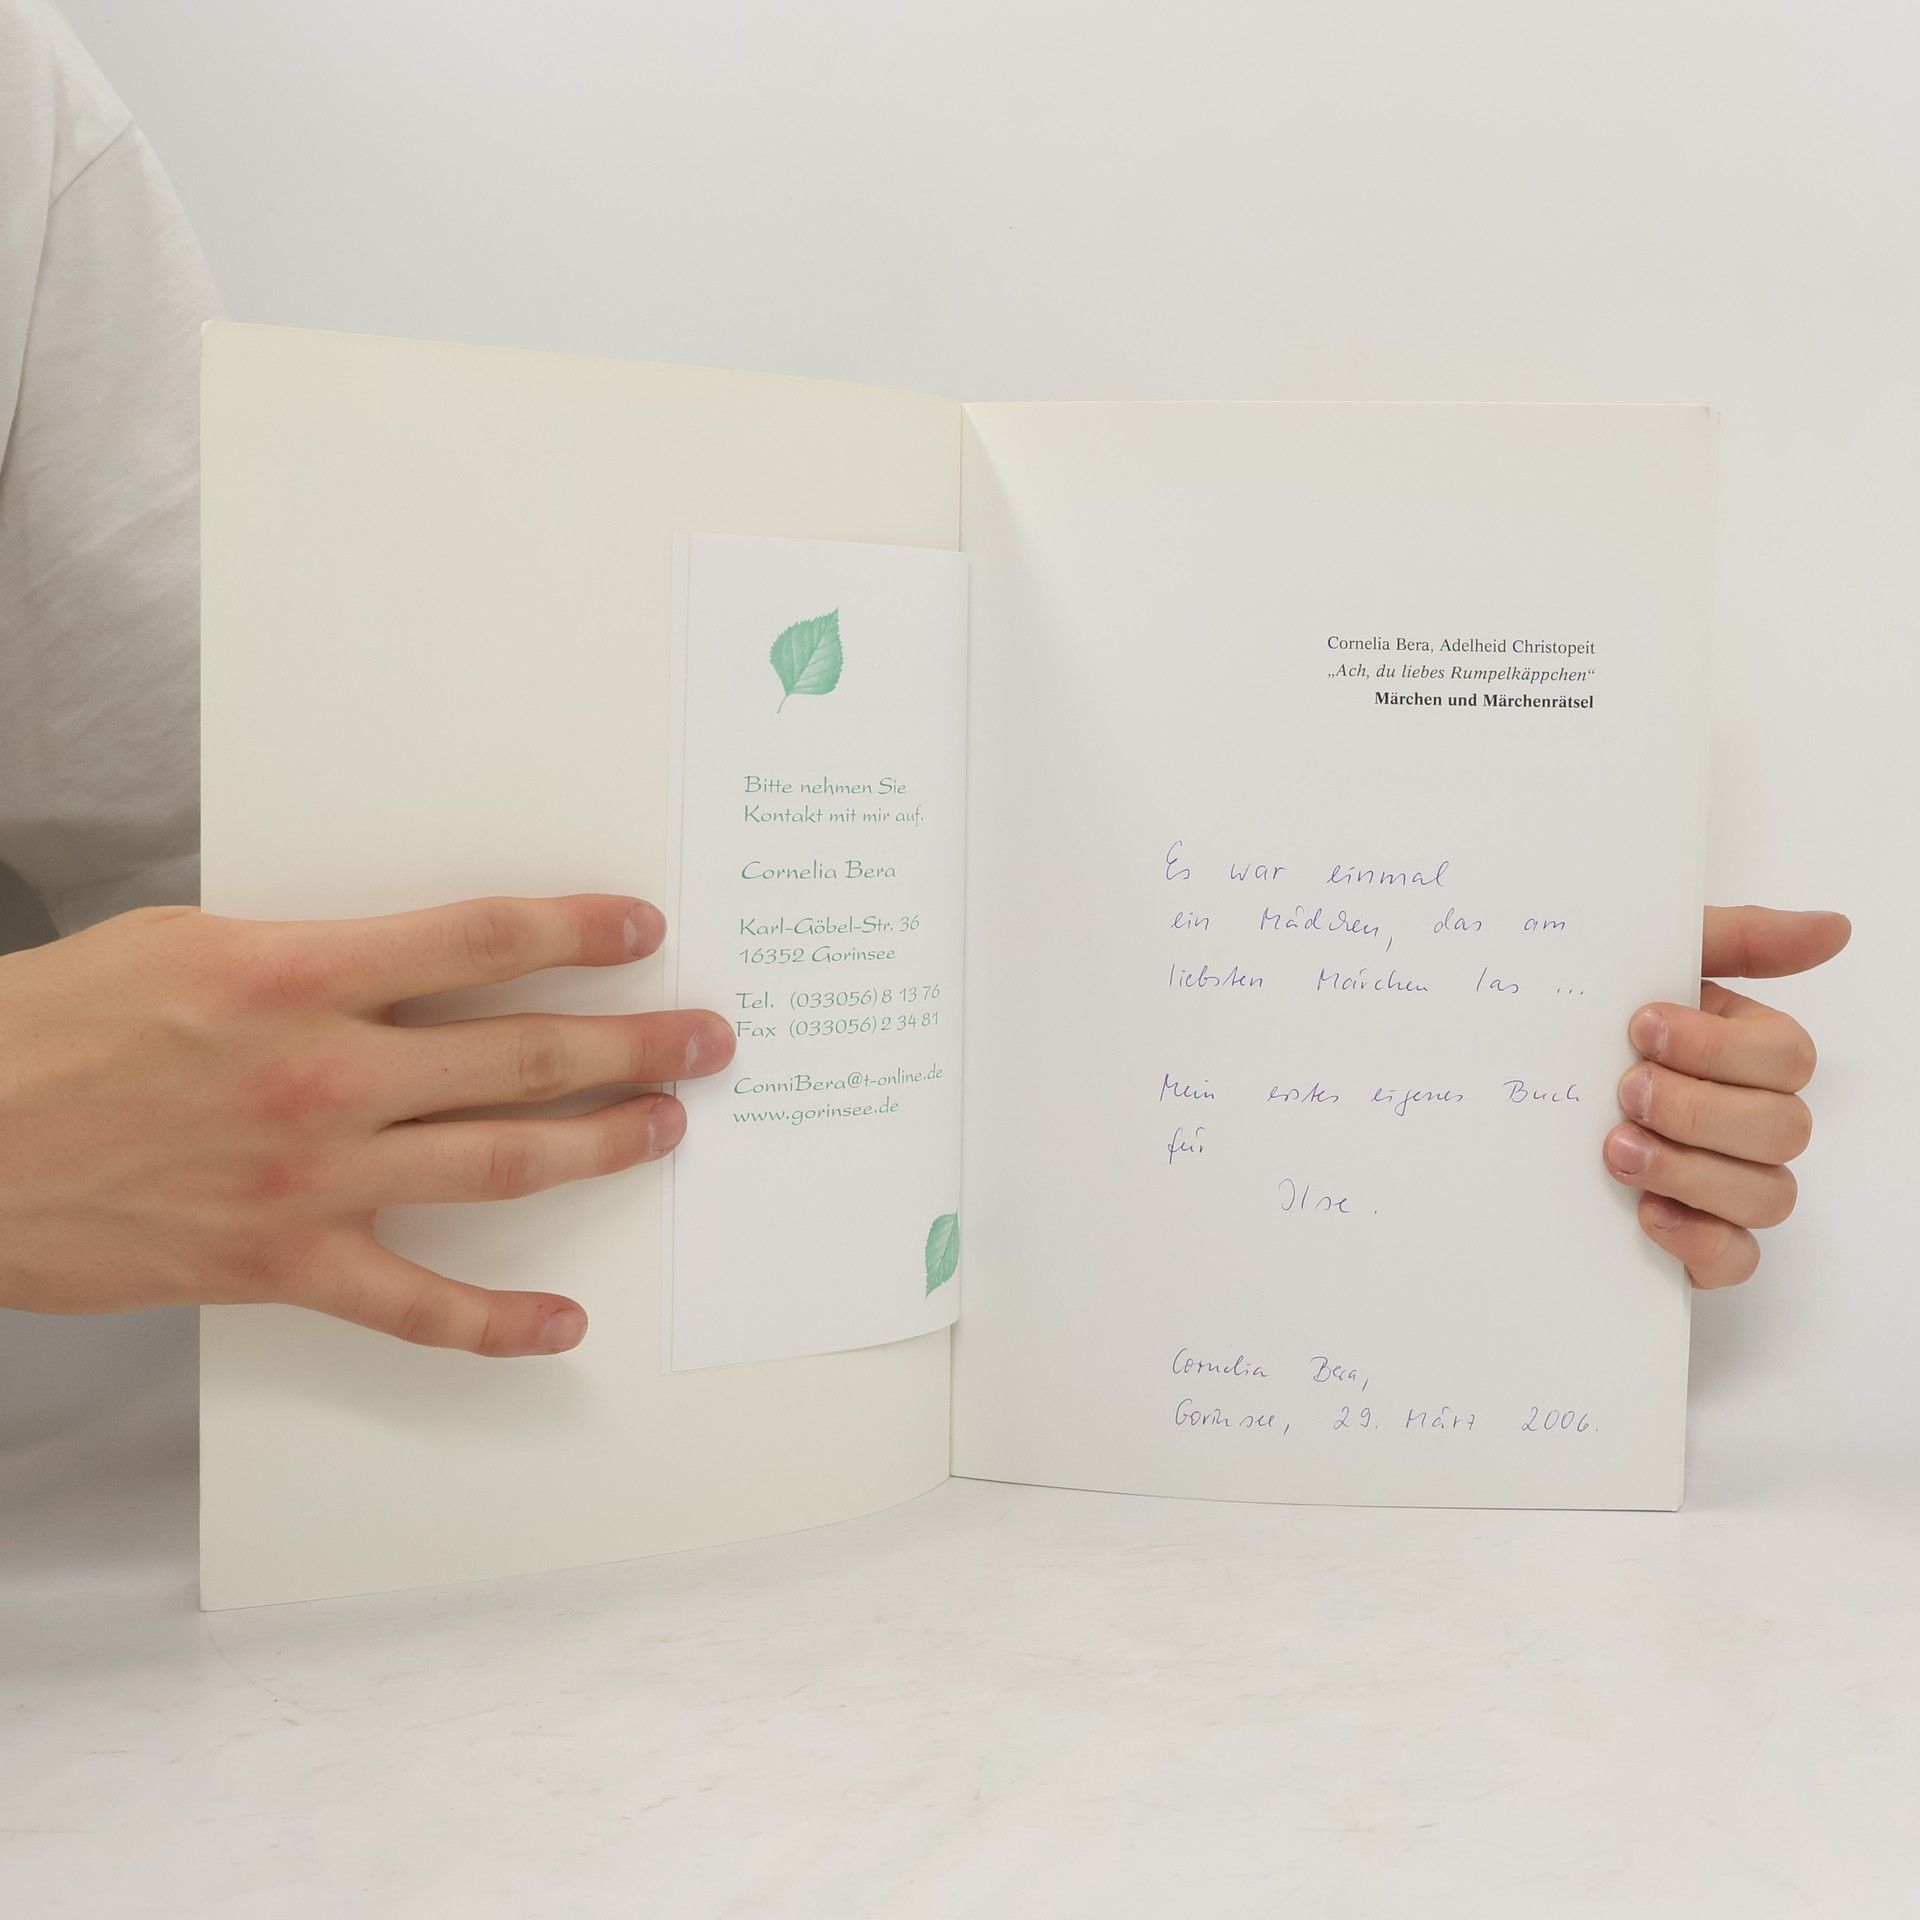 Bitte nehmen Sie
Kontakt mit mir auf.
Cornelia Bera
Karl-Göbel-Str. 36
16352 Gorinsee
Tel. (033056) 8 13 76
Fax (033056) 2 34 81
ConniBera@t-online.de
www.gorinsee.de
Cornelia Bera, Adelheid Christopeit
„Ach, du liebes Rumpelkäppchen“
Märchen und Märchenrätsel
Es war einmal
ein Mädchen, das am
liebsten Märchen las ...
Mein erstes eigenes Buch
für
Ilse.
Cornelia Bera,
Gorinsee, 29. März 2006.